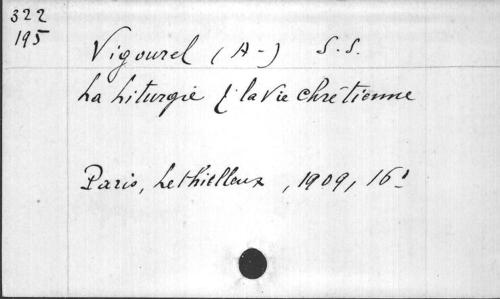 322
195
Vigourel (A-) S.S.
La Liturgie & la Vie Chrétienne
Paris, Lethielleux, 1909, 16°